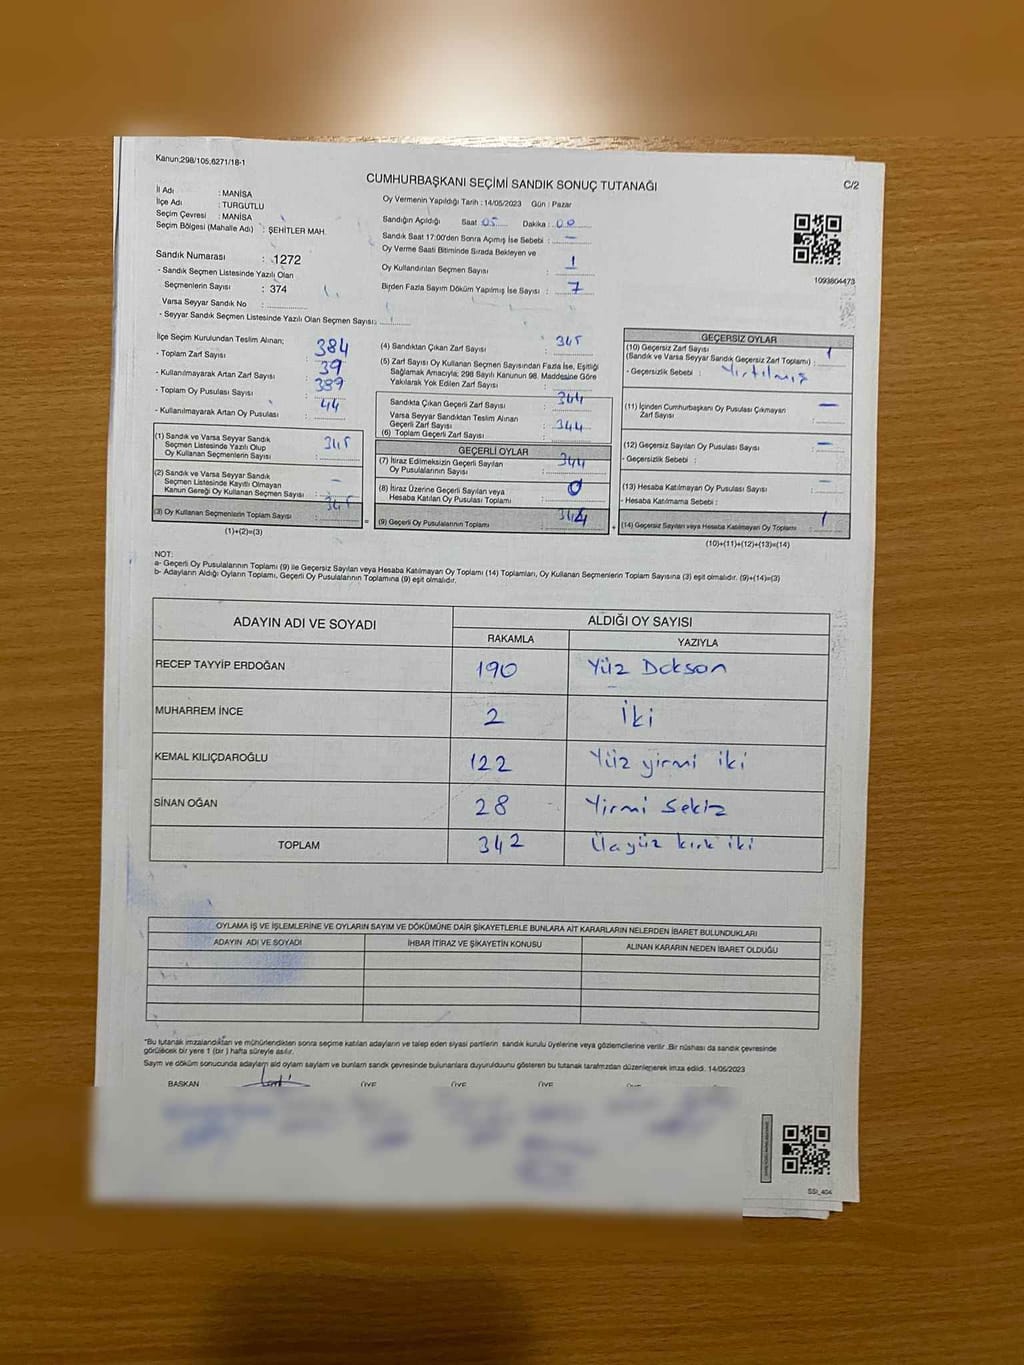 Kanun;298/105,6271/18-1
CUMHURBAŞKANI SEÇİMİ SANDIK SONUÇ TUTANAĞI
C/2
İl Adı : MANİSA
İlçe Adı : TURGUTLU
Seçim Çevresi : MANİSA
Seçim Bölgesi (Mahalle Adı) : ŞEHİTLER MAH.
Sandık Numarası : 1272
- Sandık Seçmen Listesinde Yazılı Olan
Seçmenlerin Sayısı : 374
Varsa Seyyar Sandık No :
- Seyyar Sandık Seçmen Listesinde Yazılı Olan Seçmen Sayısı:
Oy Vermenin Yapıldığı Tarih : 14/05/2023 Gün : Pazar
Sandığın Açıldığı Saat 05 Dakika : 00
Sandık Saat 17:00'den Sonra Açımış İse Sebebi : —
Oy Verme Saati Bitiminde Sırada Bekleyen ve
Oy Kullandırılan Seçmen Sayısı : 1
Birden Fazla Sayım Döküm Yapılmış İse Sayısı : 7
1093804473
İlçe Seçim Kurulundan Teslim Alınan;
- Toplam Zarf Sayısı 384
- Kullanılmayarak Artan Zarf Sayısı 39
- Toplam Oy Pusulası Sayısı 389
- Kullanılmayarak Artan Oy Pusulası 44
(1) Sandık ve Varsa Seyyar Sandık
Seçmen Listesinde Yazılı Olup
Oy Kullanan Seçmenlerin Sayısı 345
(2) Sandık ve Varsa Seyyar Sandık
Seçmen Listesinde Kayıtlı Olmayan
Kanun Gereği Oy Kullanan Seçmen Sayısı : —
(3) Oy Kullanan Seçmenlerin Toplam Sayısı 345
(1)+(2)=(3)
(4) Sandıktan Çıkan Zarf Sayısı : 345
(5) Zarf Sayısı Oy Kullanan Seçmen Sayısından Fazla İse, Eşitliği
Sağlamak Amacıyla; 298 Sayılı Kanunun 98. Maddesine Göre
Yakılarak Yok Edilen Zarf Sayısı :
Sandıkta Çıkan Geçerli Zarf Sayısı : 344
Varsa Seyyar Sandıktan Teslim Alınan
Geçerli Zarf Sayısı :
(6) Toplam Geçerli Zarf Sayısı 344
GEÇERLİ OYLAR
(7) İtiraz Edilmeksizin Geçerli Sayılan
Oy Pusulalarının Sayısı : 344
(8) İtiraz Üzerine Geçerli Sayılan veya
Hesaba Katılan Oy Pusulası Toplamı : 0
(9) Geçerli Oy Pusulalarının Toplamı 344
GEÇERSİZ OYLAR
(10) Geçersiz Zarf Sayısı
(Sandık ve Varsa Seyyar Sandık Geçersiz Zarf Toplamı) : 1
- Geçersizlik Sebebi : Yırtılmış
(11) İçinden Cumhurbaşkanı Oy Pusulası Çıkmayan
Zarf Sayısı —
(12) Geçersiz Sayılan Oy Pusulası Sayısı : —
- Geçersizlik Sebebi :
(13) Hesaba Katılmayan Oy Pusulası Sayısı : —
- Hesaba Katılmama Sebebi :
(14) Geçersiz Sayılan veya Hesaba Katılmayan Oy Toplamı : 1
(10)+(11)+(12)+(13)=(14)
NOT:
a- Geçerli Oy Pusulalarının Toplamı (9) ile Geçersiz Sayılan veya Hesaba Katılmayan Oy Toplamı (14) Toplamları, Oy Kullanan Seçmenlerin Toplam Sayısına (3) eşit olmalıdır. (9)+(14)=(3)
b- Adayların Aldığı Oyların Toplamı, Geçerli Oy Pusulalarının Toplamına (9) eşit olmalıdır.
ADAYIN ADI VE SOYADI ALDIĞI OY SAYISI
RAKAMLA YAZIYLA
RECEP TAYYİP ERDOĞAN 190 Yüz Doksan
MUHARREM İNCE 2 İki
KEMAL KILIÇDAROĞLU 122 Yüz yirmi iki
SİNAN OĞAN 28 Yirmi Sekiz
TOPLAM 342 Üçyüz kırk iki
OYLAMA İŞ VE İŞLEMLERİNE VE OYLARIN SAYIM VE DÖKÜMÜNE DAİR ŞİKAYETLERLE BUNLARA AİT KARARLARIN NELERDEN İBARET BULUNDUKLARI
ADAYIN ADI VE SOYADI İHBAR İTİRAZ VE ŞİKAYETİN KONUSU ALINAN KARARIN NEDEN İBARET OLDUĞU
*Bu tutanak imzalandıktan ve mühürlendikten sonra seçime katılan adayların ve talep eden siyasi partilerin sandık kurulu üyelerine veya gözlemcilerine verilir .Bir nüshası da sandık çevresinde
görülecek bir yere 1 (bir ) hafta süreyle asılır.
Sayım ve döküm sonucunda adayların aldığı oyların sayısı ve bunların sandık çevresinde bulunanlara duyurulduğunu gösteren bu tutanak tarafımızdan düzenlenerek imza edildi. 14/05/2023
BAŞKAN ÜYE ÜYE ÜYE
SSI_404